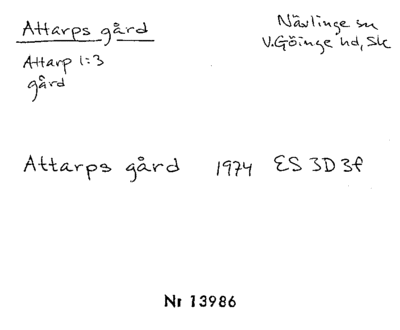 Attarps gård
Nävlinge sn
V.Göinge hd, Sk
Attarp 1:3
gård
Attarps gård 1974 ES 3D3f
Nr 13986